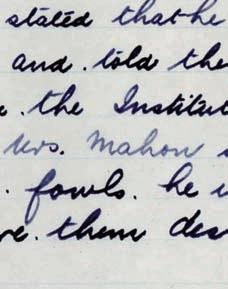 stated that he
and. told the
. the Institut
Mrs. Mahon
. fowls. he
. them des